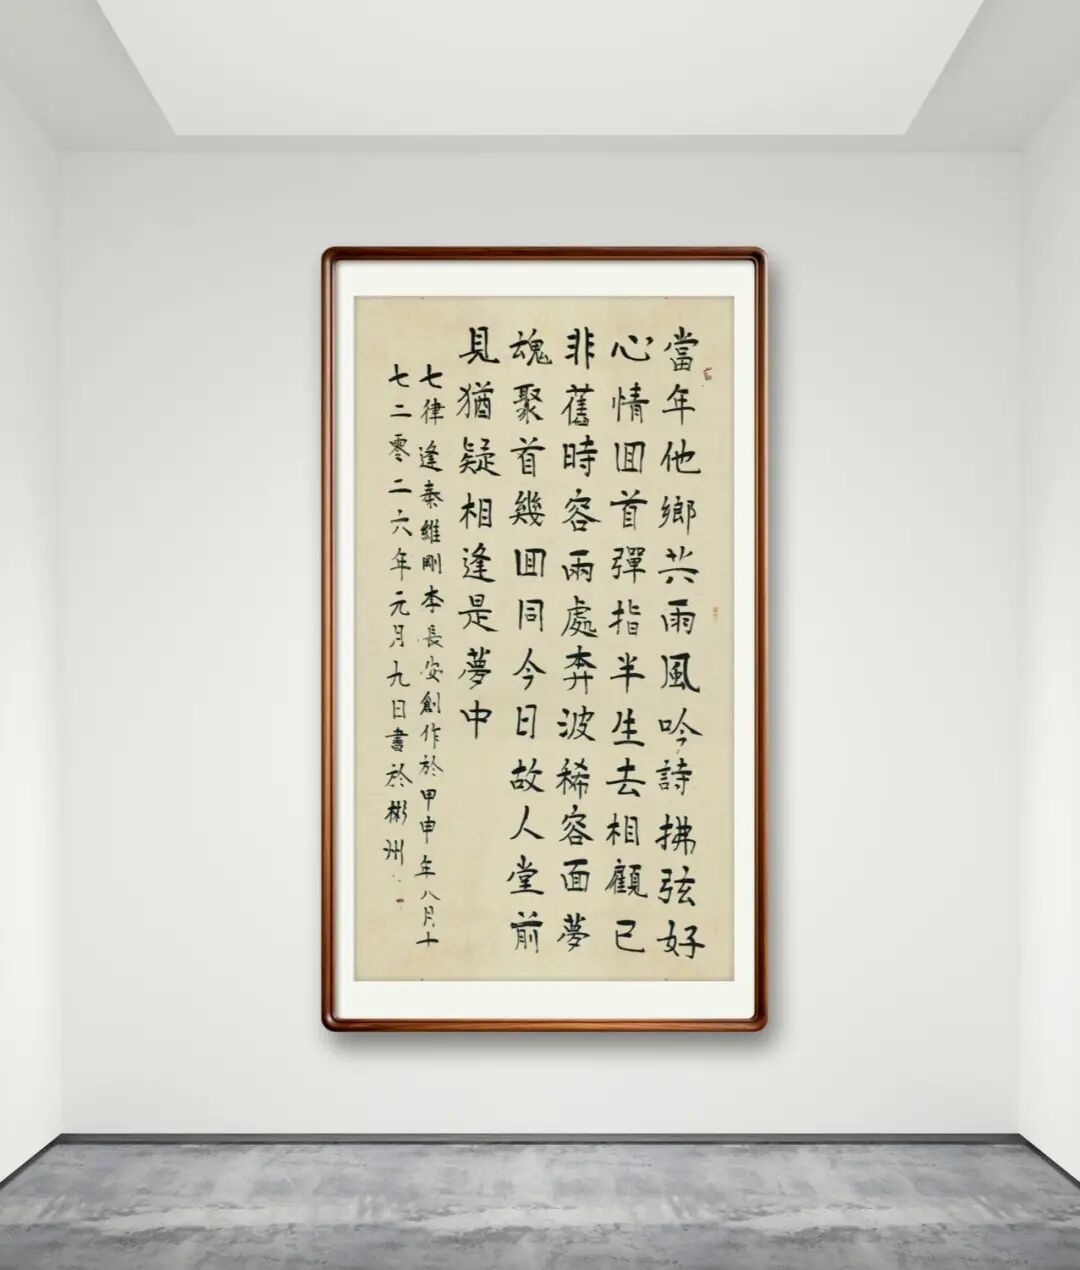 當年他鄉共雨風吟詩拂弦好
心情回首彈指半生去相顧已
非舊時容兩處奔波稀容面夢
魂聚首幾回同今日故人堂前
見猶疑相逢是夢中
七律逢秦維剛李長安創作於甲申年八月十
七二零二六年元月九日書於彬州